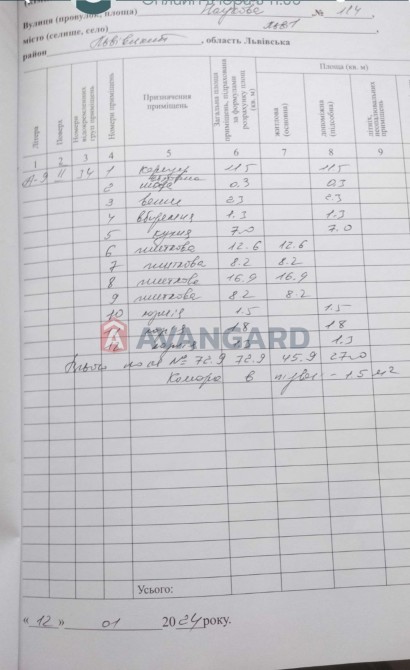 Вулиця (провулок, площа) Наукова № 114
місто (селище, село) Львів
район , область Львівська
Літера
Поверх
Номери відокремлених груп приміщень
Номери приміщень
Призначення приміщень
Загальна площа приміщень, підрахована за формулами розрахунку площ (кв. м)
Площа (кв. м)
житлова (основна)
допоміжна (підсобна)
літніх, неопалювальних приміщень
1 2 3 4 5 6 7 8 9
А-9 ІІ 34 1 коридор 11.5 11.5
2 шафа 0.3 0.3
3 ванна 2.3 2.3
4 вбиральня 1.3 1.3
5 кухня 7.0 7.0
6 житлова 12.6 12.6
7 житлова 8.2 8.2
8 житлова 16.9 16.9
9 житлова 8.2 8.2
10 лоджія 1.5 1.5
лоджія 1.8 1.8
12 лоджія 1.3 1.3
AVANGARD
Всього по пом № 72.9 72.9 45.9 27.0
Комора в підвалі - 1.5 м2
Усього:
"12" 01 2024 року.